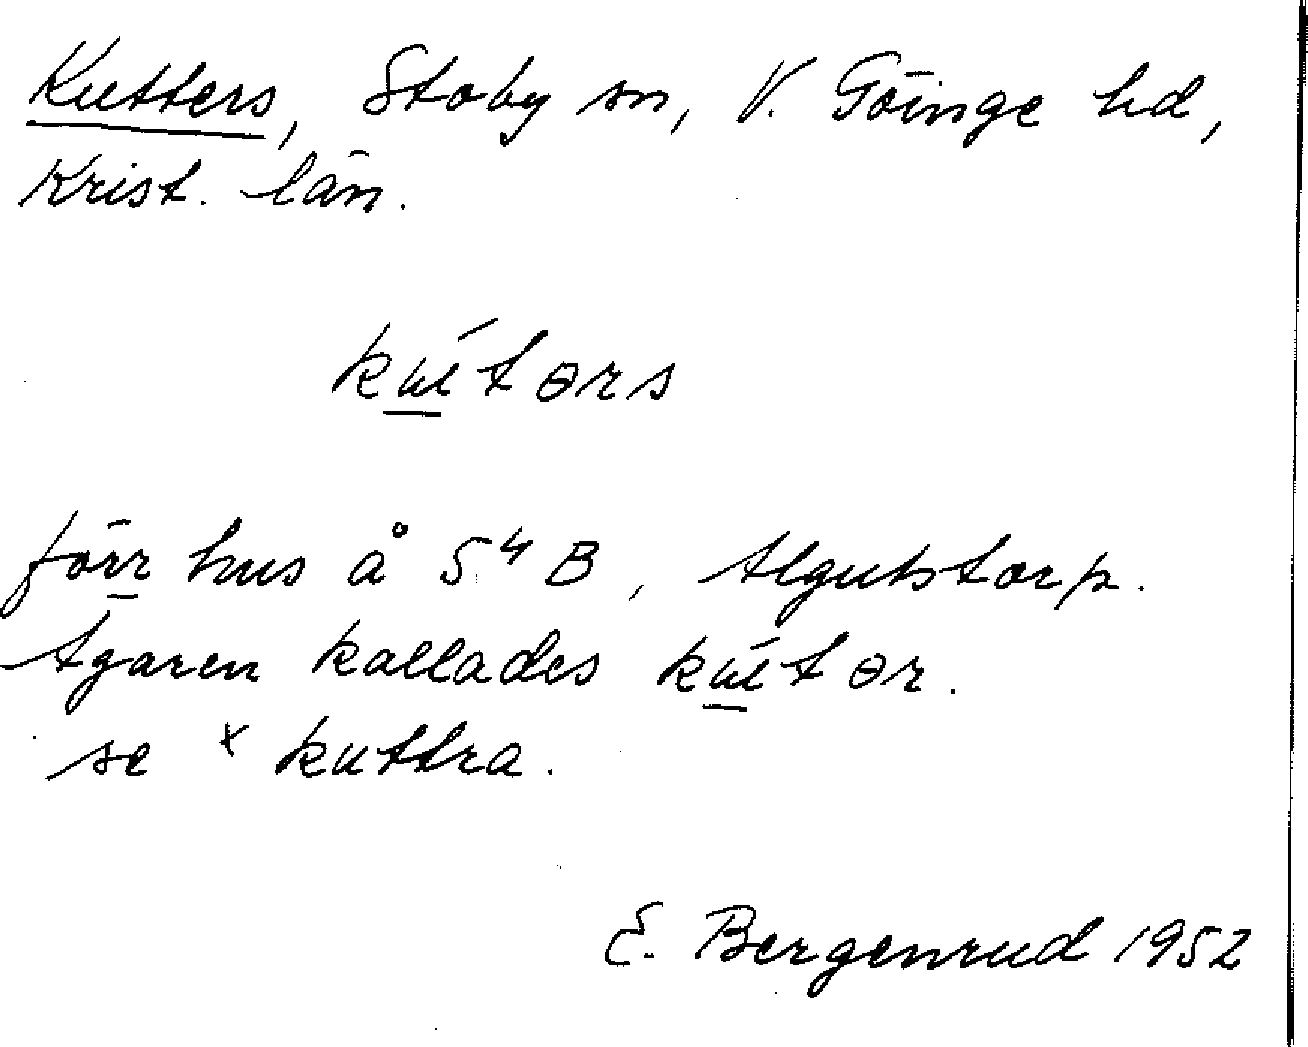 Kutters, Stoby sn, V. Göinge hd,
Krist. län.
kút ərs
förr hus å 5⁴ B, Algutstorp.
Ägaren kallades kút ər.
se x kuttra.
E. Bergenrud 1952